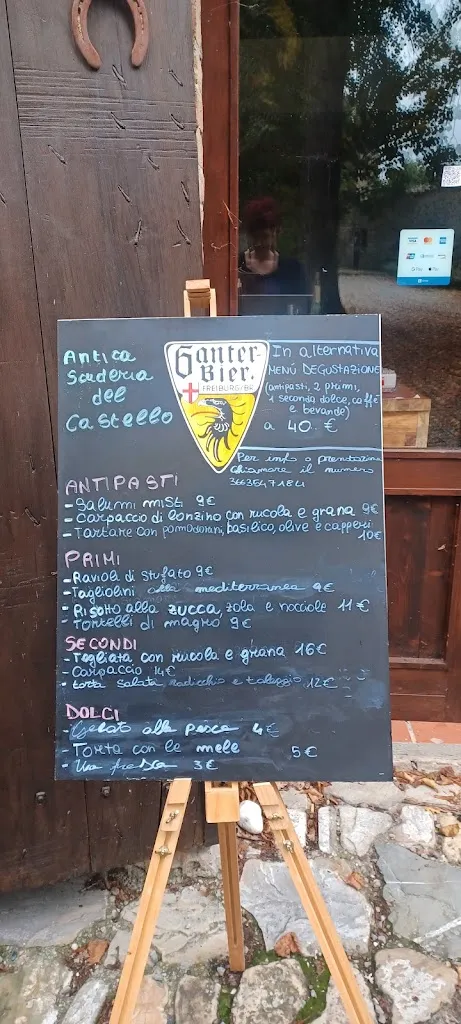 Antica
Scuderia
del
Castello
Ganter
Bier.
FREIBURG/BR
In alternativa
MENÚ DEGUSTAZIONE
(antipasti, 2 primi,
1 secondo dolce, caffè
e bevande)
a 40. €
Per info o prenotazioni
chiamare il numero
3663547184
ANTIPASTI
- Salumi misti 9€
- Carpaccio di lonzino con rucola e grana 9€
- Tartare con pomodorini, basilico, olive e capperi
10€
PRIMI
- Ravioli di stufato 9€
- Tagliolini alla mediterranea 9€
- Risotto alla zucca, zola e nocciole 11€
- Tortelli di magro 9€
SECONDI
- Tagliata con rucola e grana 16€
- Carpaccio 14€
- torta salata radicchio e taleggio 12€
DOLCI
- Gelato alla pesca 4€
- Torta con le mele 5€
- Uva fresca 3€